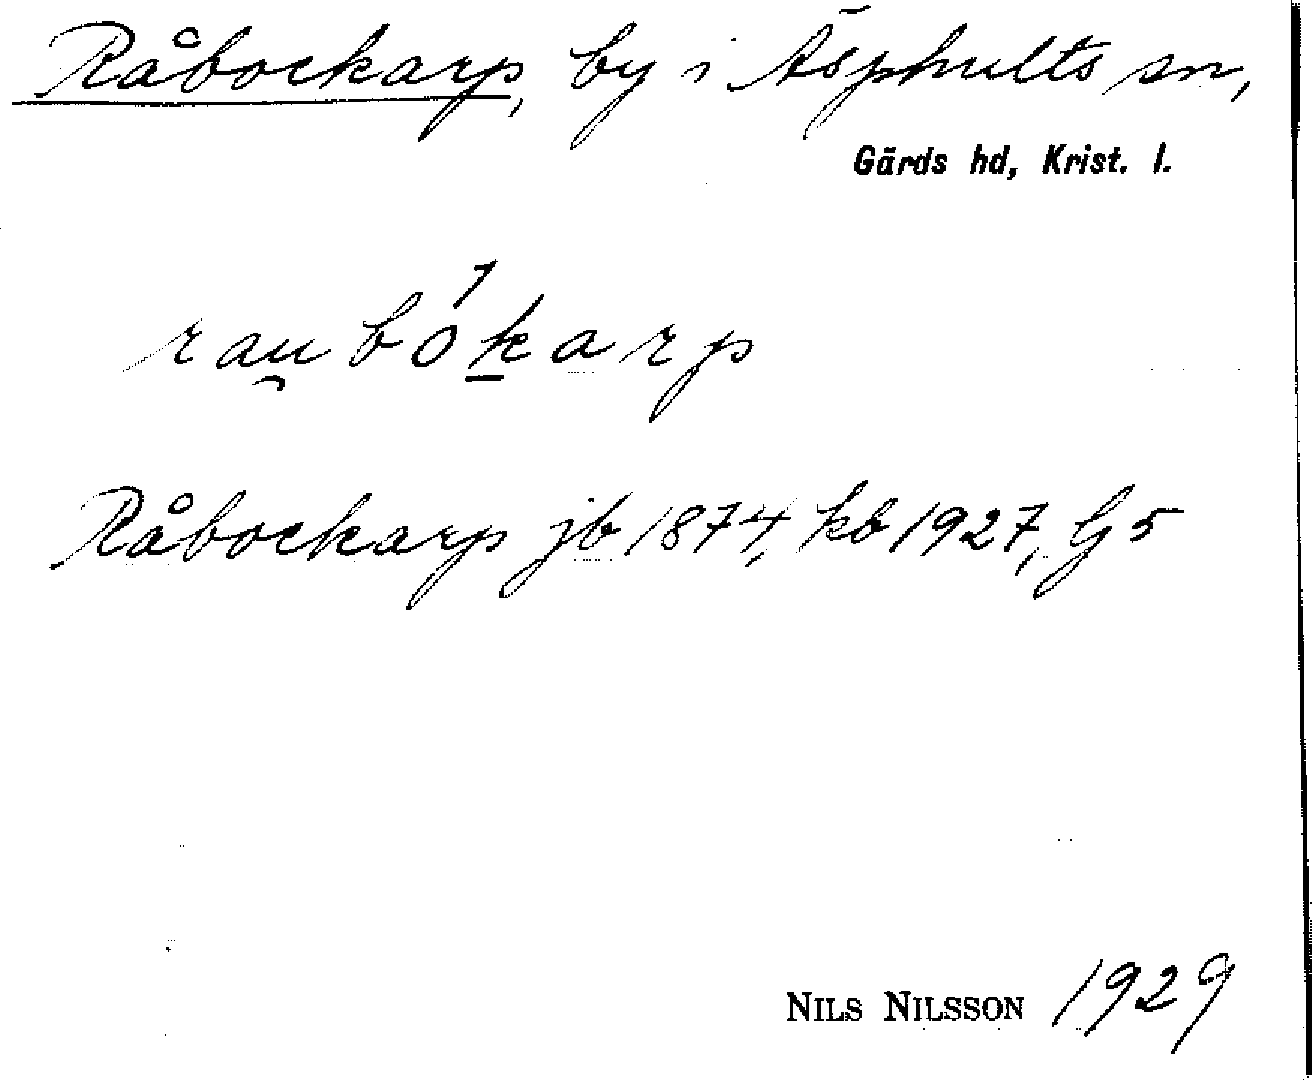 Råbockarp, by i Äsphults sn,
Gärds hd, Krist. l.
rau̯bókarp
Råbockarp jb 1874, kb 1927, G5
NILS NILSSON 1929